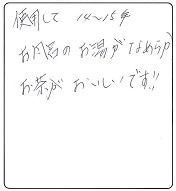 使用して 14〜15年
お風呂のお湯がなめらか
お茶がおいしいです!!